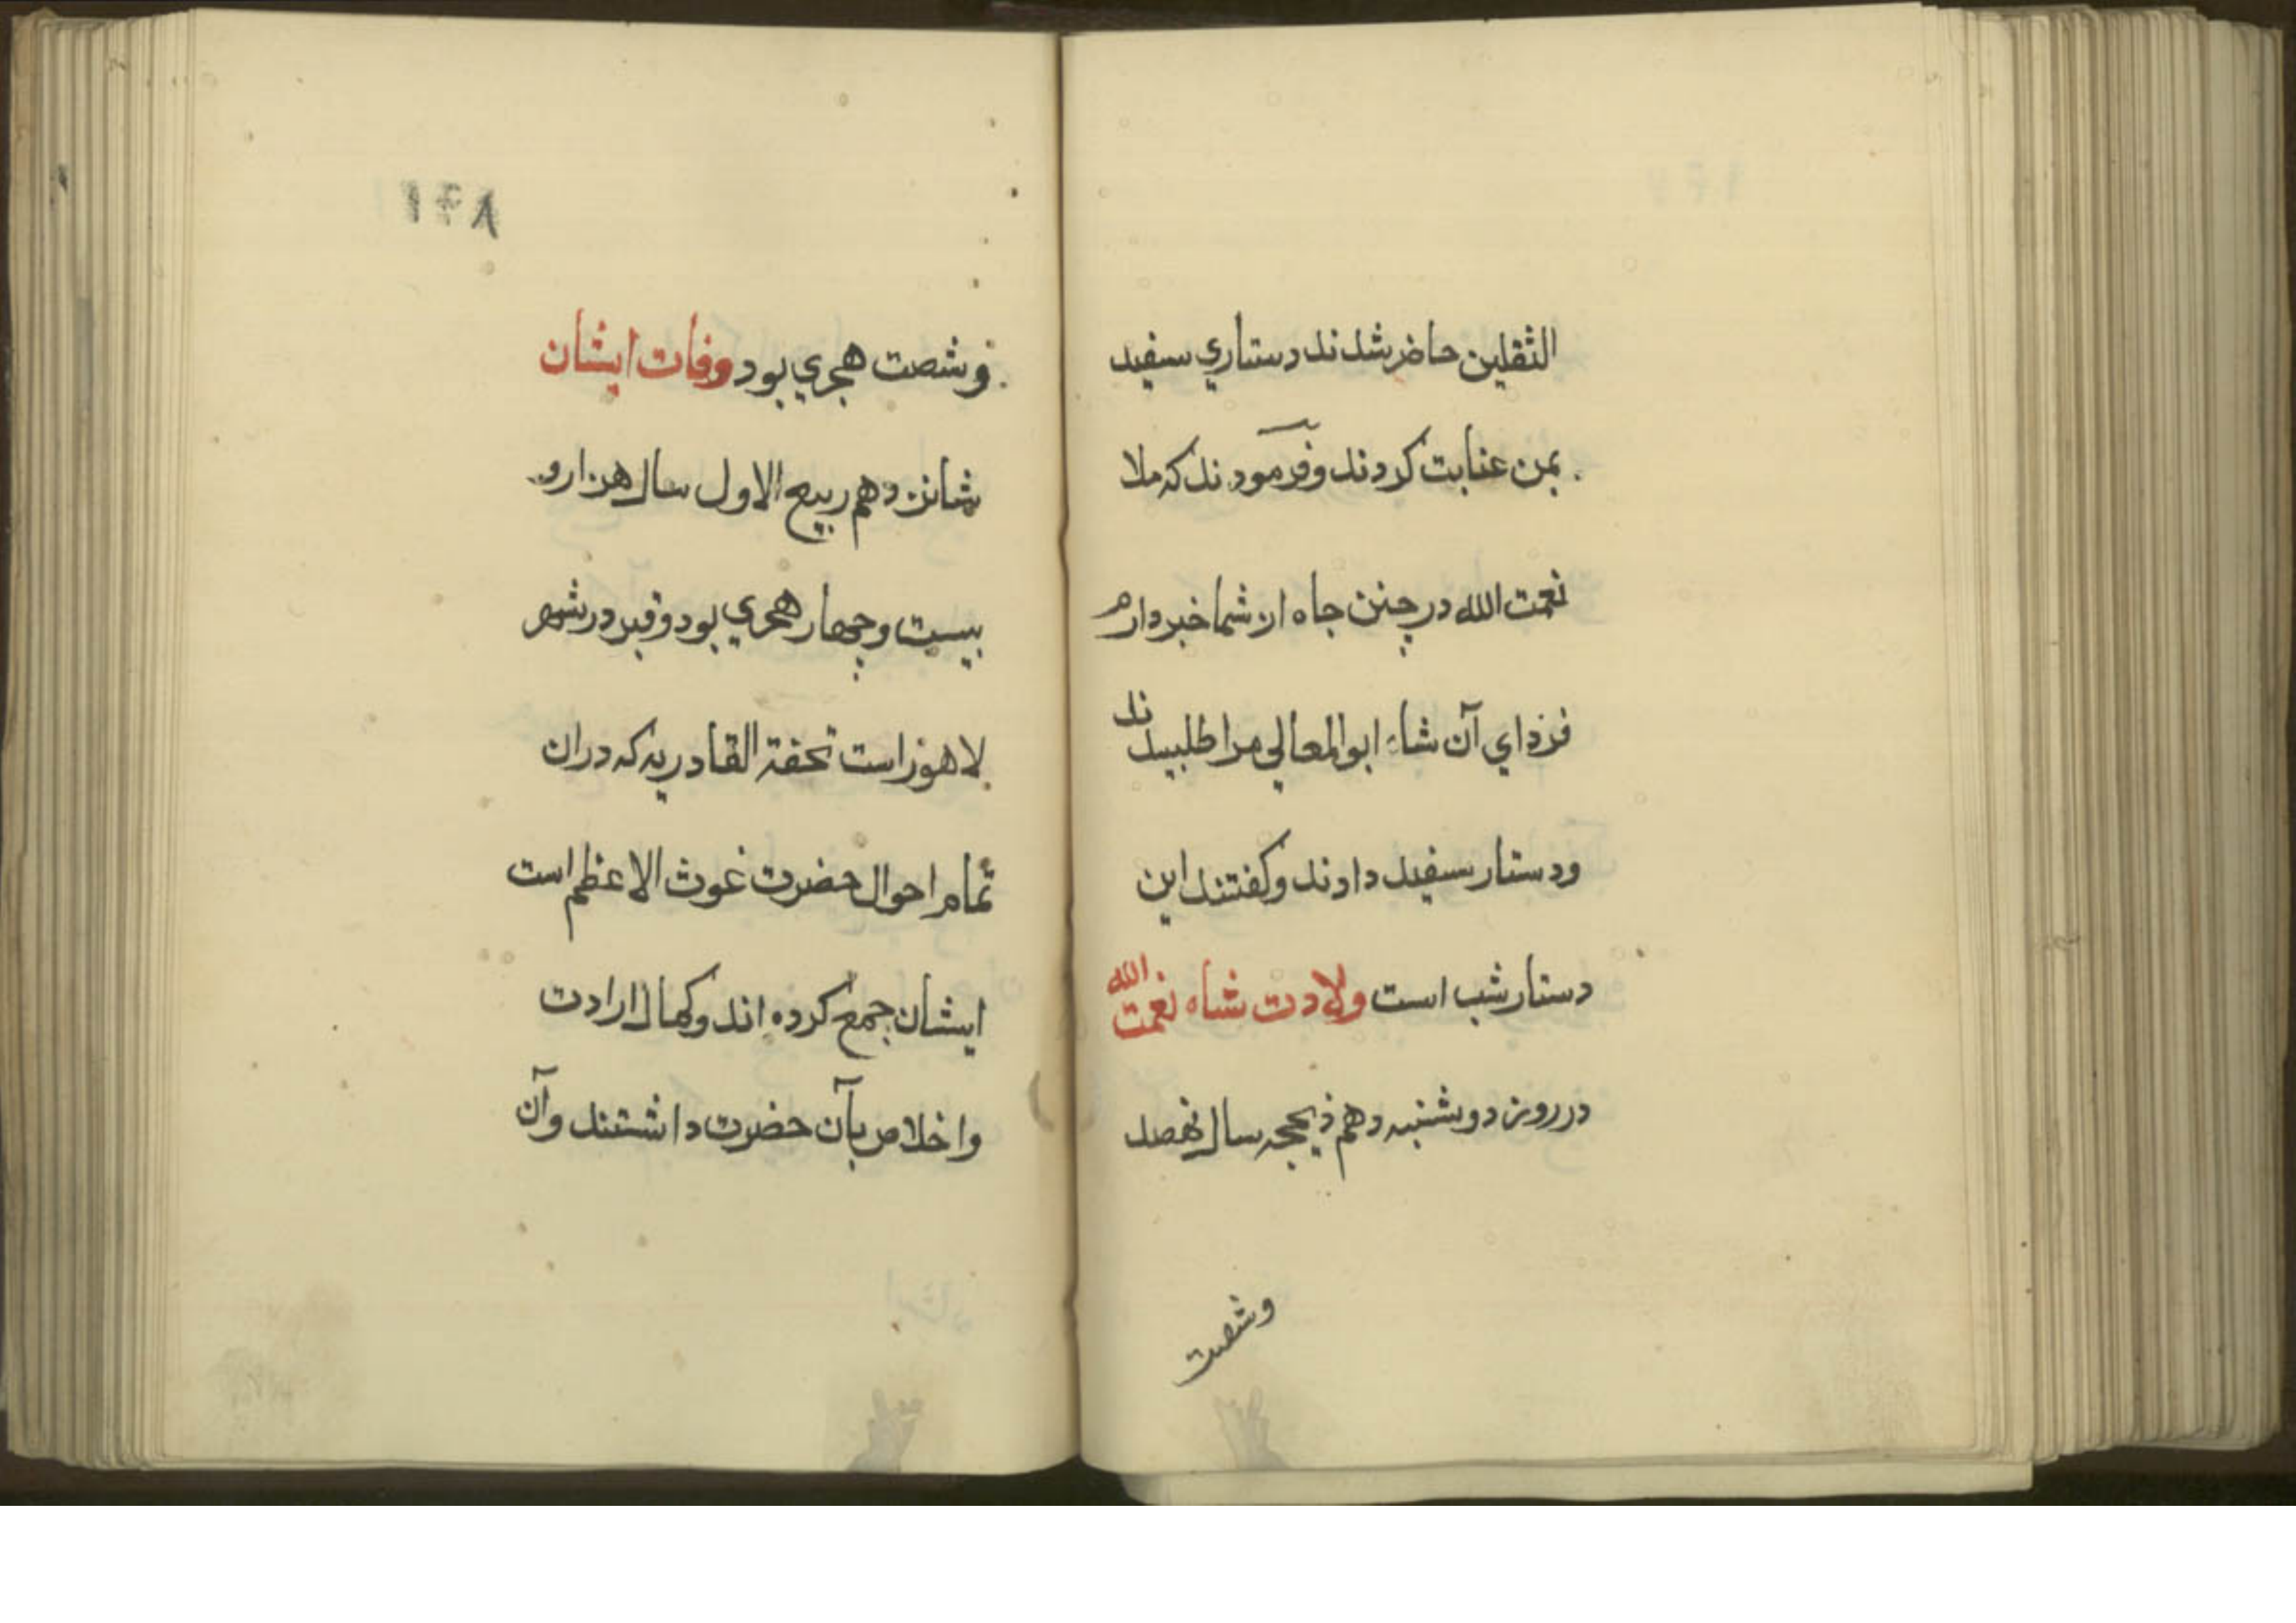 الثقلين حاضر شدند دستاري سفيد
بمن عنايت كردند وفرمودند كه ملا
نعمت الله در چنين جاه از شما خبردارم
فرداي آن شاه ابو المعالي مرا طلبيدند
ودستار سفيد دادند وكفتند اين
دستار شب است ولادت شاه نعمت الله
در روز دوشنبه دهم ذيحجه سال نهصد
وشصت
وشصت هجري بود وفات ايشان
شانزدهم ربيع الاول سال هزار و
بيست وچهار هجري بود وقبر در شهر
لاهوز است تحفة القادريه كه دران
تمام احوال حضرت غوث الاعظم است
ايشان جمع كرده اند وكمال ارادت
واخلاص بآن حضرت داشتند وآن